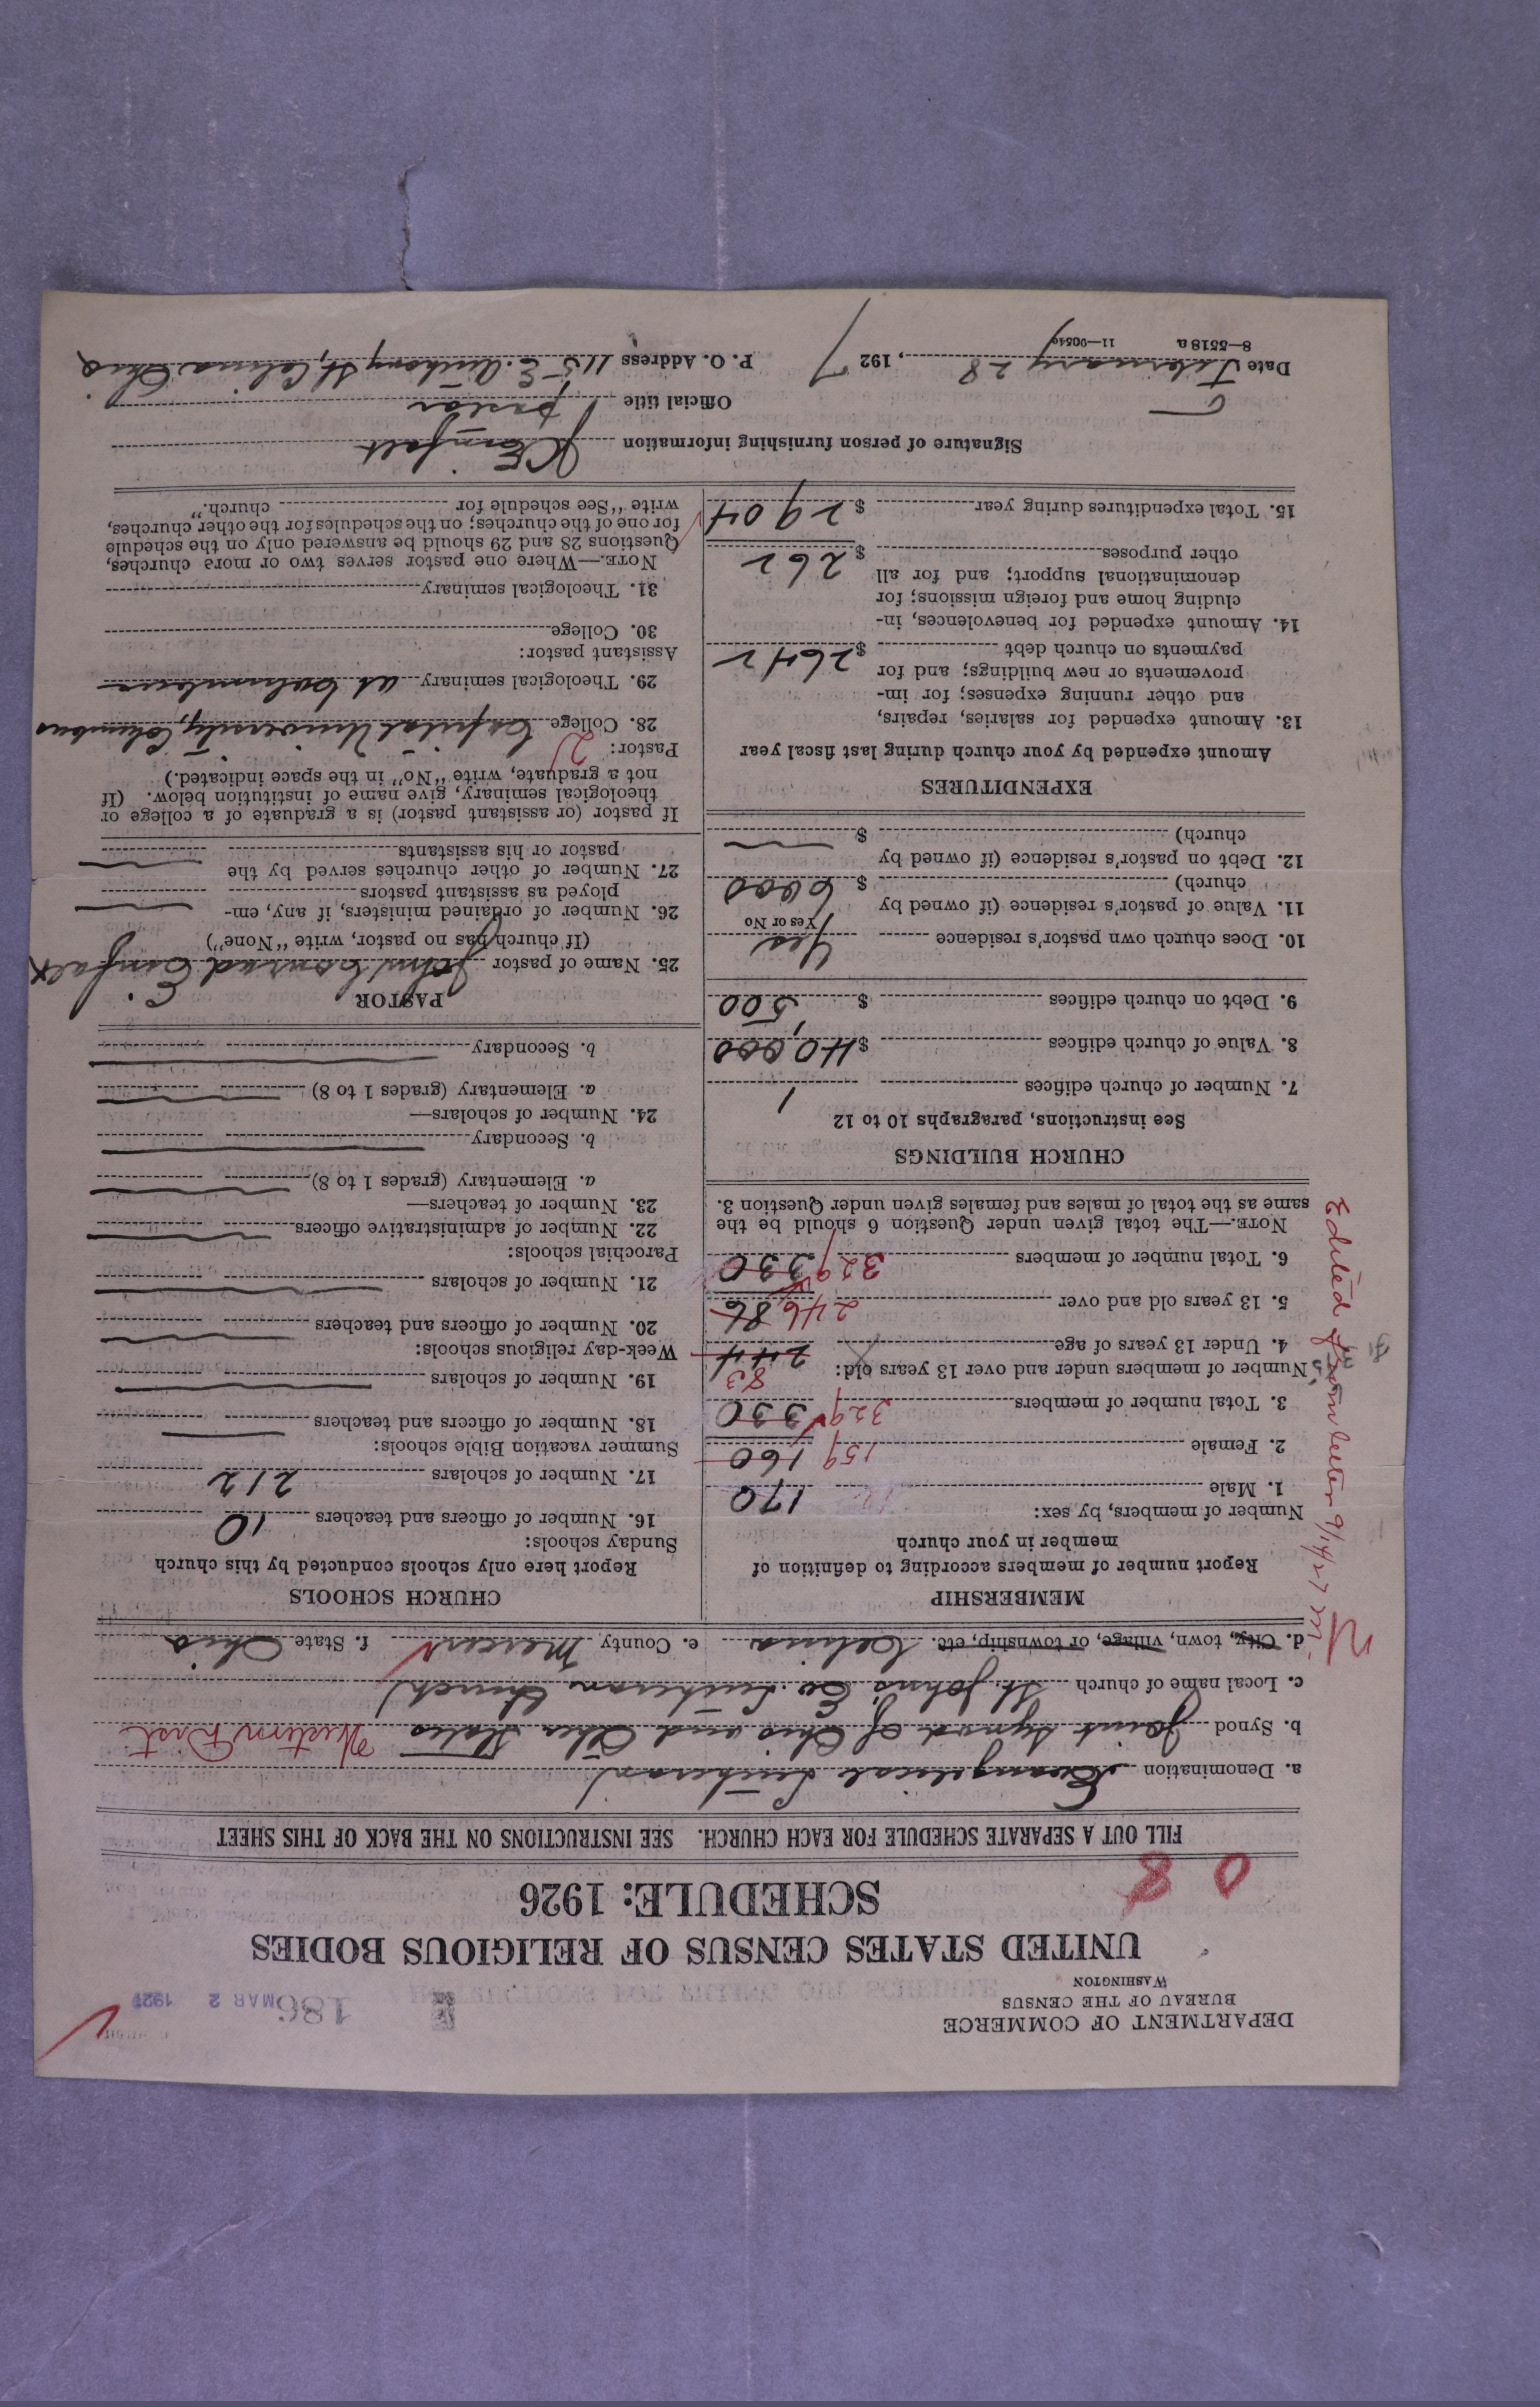 DEPARTMENT OF COMMERCE
BUREAU OF THE CENSUS
WASHINGTON
186
MAR 2 1927
UNITED STATES CENSUS OF RELIGIOUS BODIES
SCHEDULE: 1926
0 8
FILL OUT A SEPARATE SCHEDULE FOR EACH CHURCH. SEE INSTRUCTIONS ON THE BACK OF THIS SHEET
a. Denomination Evangelical Lutheran
b. Synod Joint Synod of Ohio and Other States Western Dist
c. Local name of church St. John's Ev. Lutheran Church
d. City, town, village, or township, etc. Celina e. County Mercer f. State Ohio
MEMBERSHIP
Report number of members according to definition of
member in your church
Number of members, by sex:
1. Male 170
2. Female 159 160
3. Total number of members 329 330
Number of members under and over 13 years old: 83
4. Under 13 years of age 244
5. 13 years old and over 246 86
6. Total number of members 329 330
NOTE.—The total given under Question 6 should be the
same as the total of males and females given under Question 3.
CHURCH BUILDINGS
See instructions, paragraphs 10 to 12
7. Number of church edifices 1
8. Value of church edifices $ 40,000
9. Debt on church edifices $ 500
10. Does church own pastor's residence Yes
Yes or No
11. Value of pastor's residence (if owned by
church) $ 6000
12. Debt on pastor's residence (if owned by
church) $
EXPENDITURES
Amount expended by your church during last fiscal year
13. Amount expended for salaries, repairs,
and other running expenses; for im-
provements or new buildings; and for
payments on church debt $ 2642
14. Amount expended for benevolences, in-
cluding home and foreign missions; for
denominational support; and for all
other purposes $ 262
15. Total expenditures during year $ 2904
CHURCH SCHOOLS
Report here only schools conducted by this church
Sunday schools:
16. Number of officers and teachers 10
17. Number of scholars 212
Summer vacation Bible schools:
18. Number of officers and teachers
19. Number of scholars
Week-day religious schools:
20. Number of officers and teachers
21. Number of scholars
Parochial schools:
22. Number of administrative officers
23. Number of teachers—
a. Elementary (grades 1 to 8)
b. Secondary
24. Number of scholars—
a. Elementary (grades 1 to 8)
b. Secondary
PASTOR
25. Name of pastor John Conrad Einfalt
(If church has no pastor, write "None")
26. Number of ordained ministers, if any, em-
ployed as assistant pastors
27. Number of other churches served by the
pastor or his assistants
If pastor (or assistant pastor) is a graduate of a college or
theological seminary, give name of institution below. (If
not a graduate, write "No" in the space indicated.)
Pastor: 2
28. College Capital University, Columbus
29. Theological seminary at Columbus
Assistant pastor:
30. College
31. Theological seminary
NOTE.—Where one pastor serves two or more churches,
Questions 28 and 29 should be answered only on the schedule
for one of the churches; on the schedules for the other churches,
write "See schedule for church."
Signature of person furnishing information J C Einfalt
Official title pastor
Date February 28, 1927 P. O. Address 115 E. Anthony St, Celina Ohio
8—5518 a
Edited from letter 9/14/27